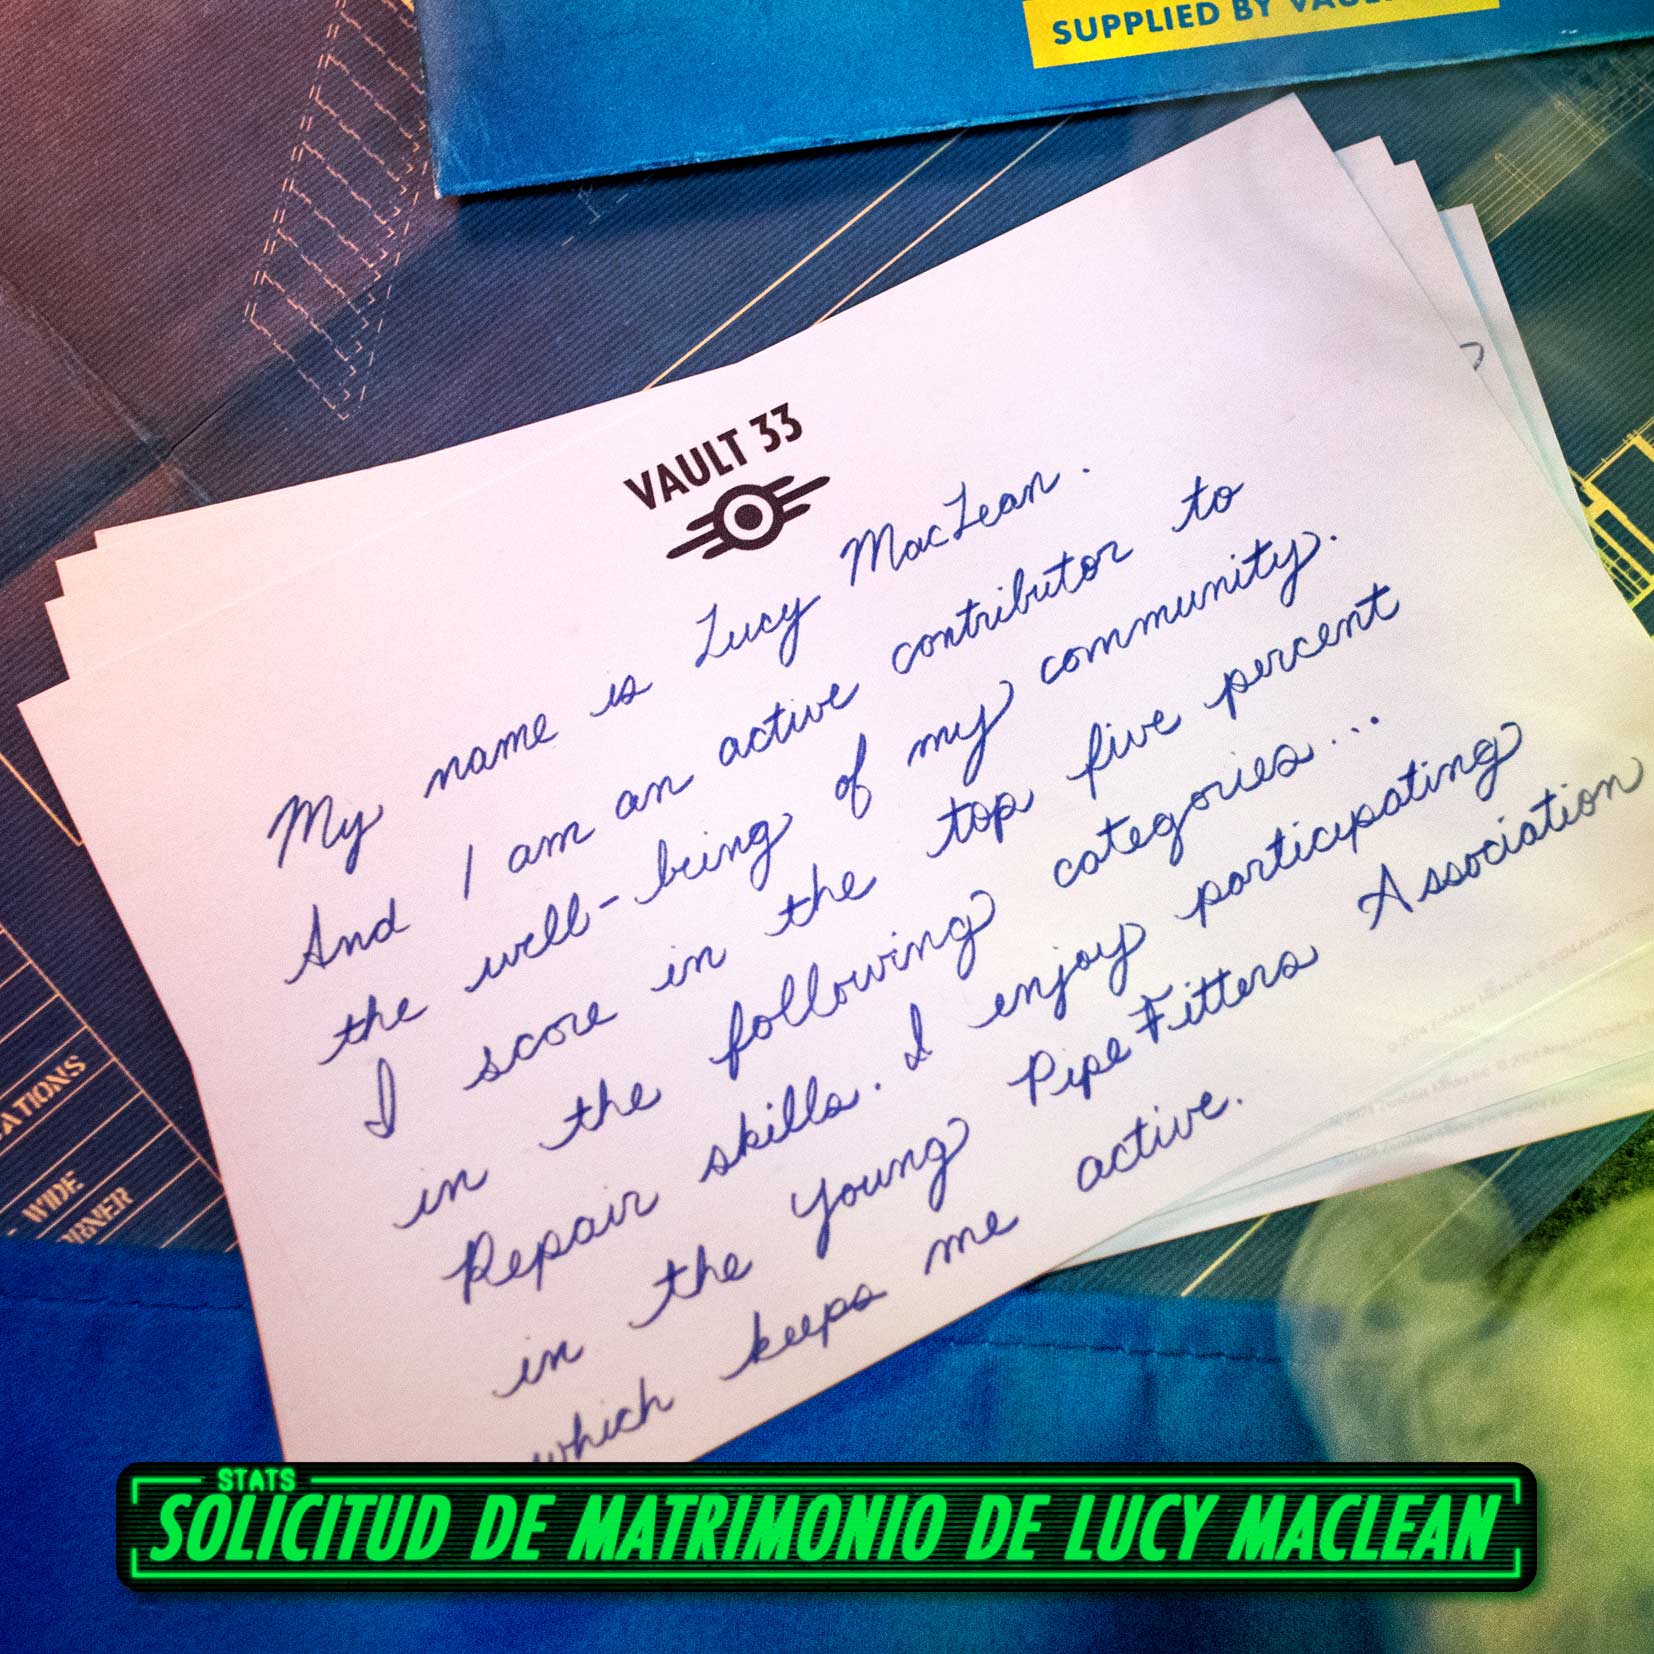 SUPPLIED BY
VAULT 33
My name is Lucy MacLean.
And I am an active contributor to
the well-being of my community.
I score in the top five percent
in the following categories...
Repair skills. I enjoy participating
in the Young PipeFitters Association
which keeps me active.
WIDE
STATS
SOLICITUD DE MATRIMONIO DE LUCY MACLEAN